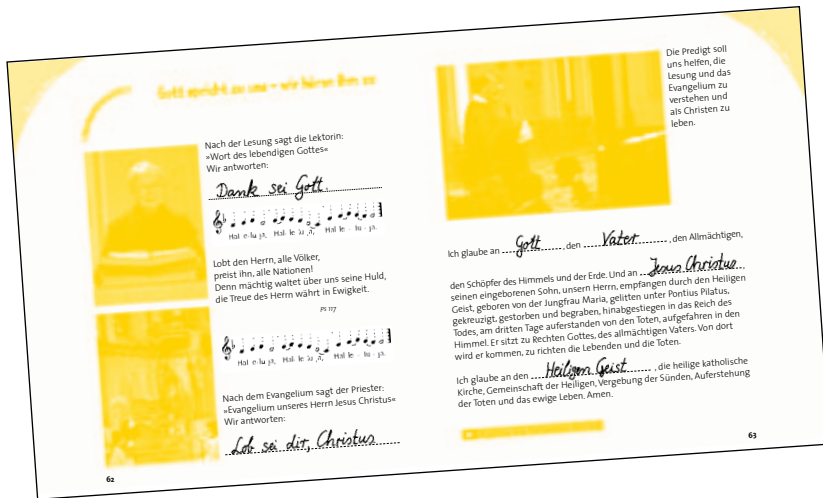 Gott spricht zu uns – wir hören ihm zu
Nach der Lesung sagt die Lektorin:
»Wort des lebendigen Gottes«
Wir antworten:
Dank sei Gott.
Hal e-lu ja, Hal- le lu ja, Hal le - lu - ja.
Lobt den Herrn, alle Völker,
preist ihn, alle Nationen!
Denn mächtig waltet über uns seine Huld,
die Treue des Herrn währt in Ewigkeit.
Ps 117
Hal e-lu ja, Hal- le lu ja, Hal le - lu - ja.
Nach dem Evangelium sagt der Priester:
»Evangelium unseres Herrn Jesus Christus«
Wir antworten:
Lob sei dir, Christus
62
Die Predigt soll
uns helfen, die
Lesung und das
Evangelium zu
verstehen und
als Christen zu
leben.
Ich glaube an Gott, den Vater, den Allmächtigen,
den Schöpfer des Himmels und der Erde. Und an Jesus Christus,
seinen eingeborenen Sohn, unsern Herrn, empfangen durch den Heiligen
Geist, geboren von der Jungfrau Maria, gelitten unter Pontius Pilatus,
gekreuzigt, gestorben und begraben, hinabgestiegen in das Reich des
Todes, am dritten Tage auferstanden von den Toten, aufgefahren in den
Himmel. Er sitzt zu Rechten Gottes, des allmächtigen Vaters. Von dort
wird er kommen, zu richten die Lebenden und die Toten.
Ich glaube an den Heiligen Geist, die heilige katholische
Kirche, Gemeinschaft der Heiligen, Vergebung der Sünden, Auferstehung
der Toten und das ewige Leben. Amen.
63